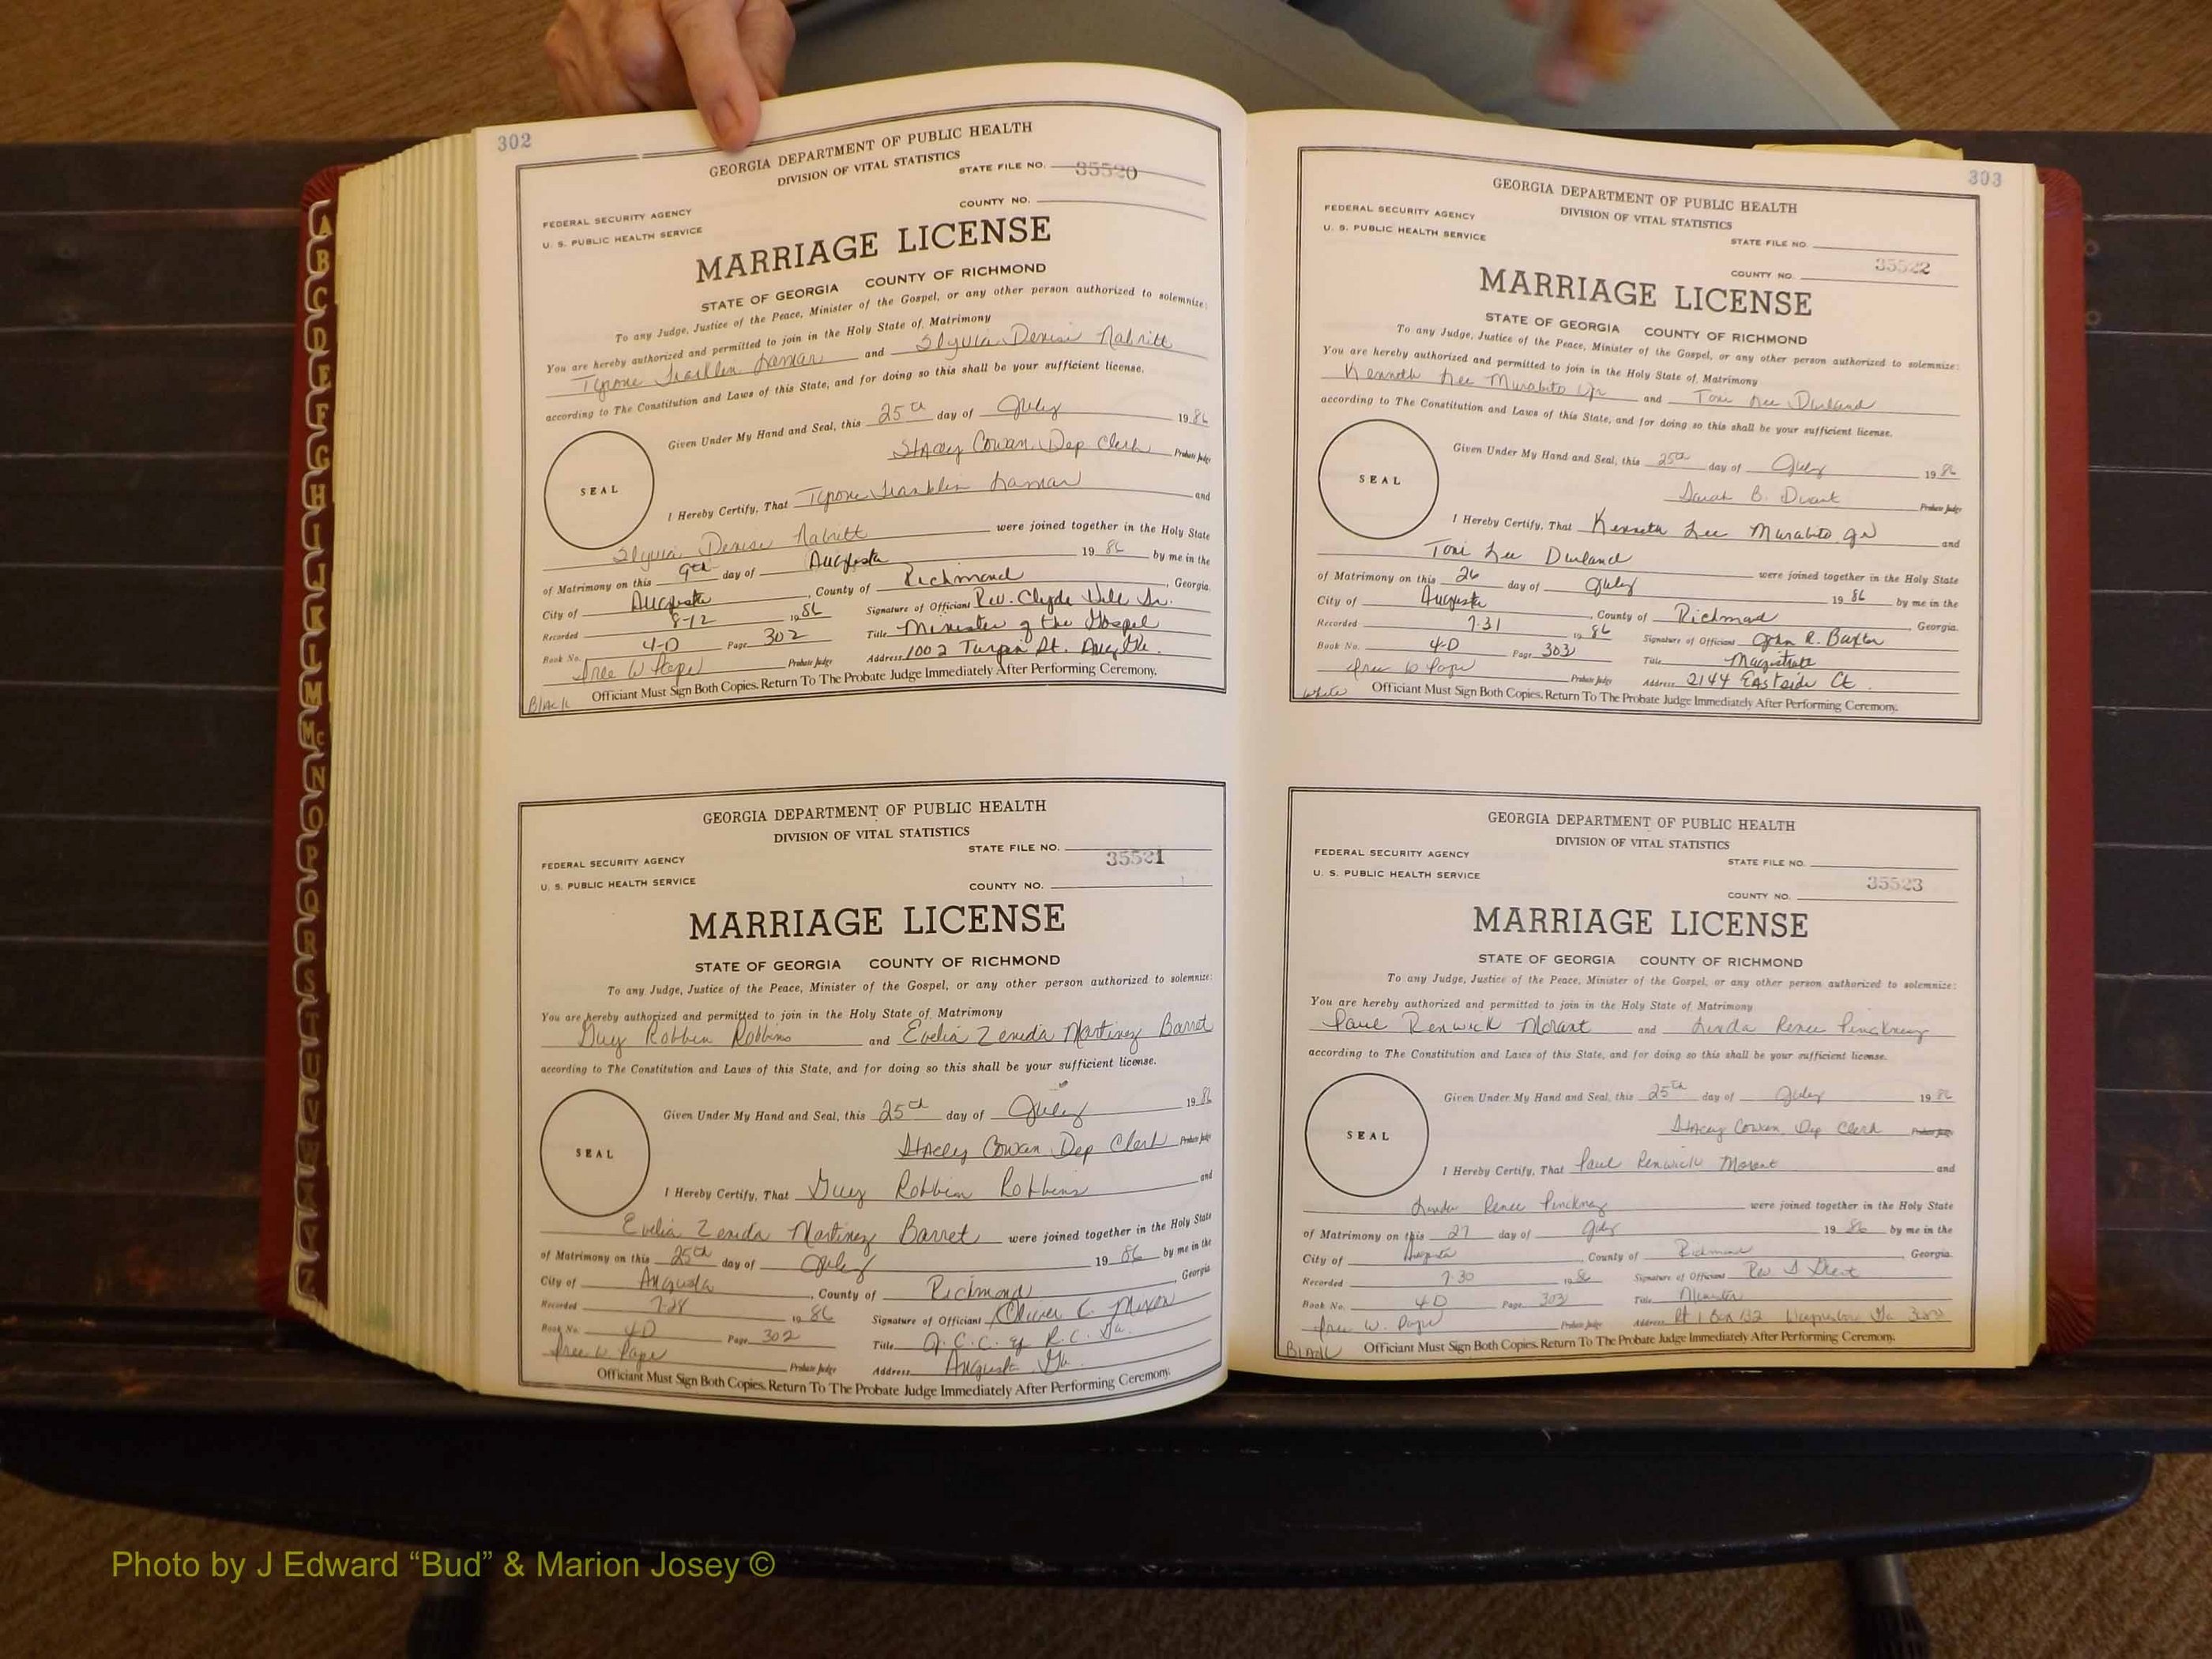 302
GEORGIA DEPARTMENT OF PUBLIC HEALTH
DIVISION OF VITAL STATISTICS
STATE FILE NO. 35520
FEDERAL SECURITY AGENCY
COUNTY NO.
U. S. PUBLIC HEALTH SERVICE
MARRIAGE LICENSE
STATE OF GEORGIA COUNTY OF RICHMOND
To any Judge, Justice of the Peace, Minister of the Gospel, or any other person authorized to solemnize:
You are hereby authorized and permitted to join in the Holy State of Matrimony
Tyrone Franklin Lamar and Slyvia Denise Nabritt
according to The Constitution and Laws of this State, and for doing so this shall be your sufficient license.
Given Under My Hand and Seal, this 25th day of July 19 86
Stacey Cowan, Dep Clerk Probate Judge
SEAL
I Hereby Certify, That Tyrone Franklin Lamar and
Slyvia Denise Nabritt were joined together in the Holy State
of Matrimony on this 9th day of Augusta 19 86 by me in the
City of Augusta, County of Richmond, Georgia.
Recorded 8-12 19 86 Signature of Officiant Rev. Clyde Sr.
Book No. 4-D Page 302 Title Minister of the Gospel
W Probate Judge Address 1002 Turpin St. Aug Ga.
Officiant Must Sign Both Copies. Return To The Probate Judge Immediately After Performing Ceremony.
Black
GEORGIA DEPARTMENT OF PUBLIC HEALTH
DIVISION OF VITAL STATISTICS
STATE FILE NO.
35521
FEDERAL SECURITY AGENCY
U. S. PUBLIC HEALTH SERVICE
COUNTY NO.
MARRIAGE LICENSE
STATE OF GEORGIA COUNTY OF RICHMOND
To any Judge, Justice of the Peace, Minister of the Gospel, or any other person authorized to solemnize:
You are hereby authorized and permitted to join in the Holy State of Matrimony
Guy Robbin Robbins and Evelia Zeneda Martinez Barret
according to The Constitution and Laws of this State, and for doing so this shall be your sufficient license.
Given Under My Hand and Seal, this 25th day of July 19 86
Stacey Cowan Dep Clerk Probate Judge
SEAL
I Hereby Certify, That Guy Robbin Robbins and
Evelia Zeneda Martinez Barret were joined together in the Holy State
of Matrimony on this 25th day of July 19 86 by me in the
City of Augusta, County of Richmond, Georgia
Recorded 7-28 19 86 Signature of Officiant Oliver C. Mixon
Book No. 4D Page 302 Title J. C. C. of R. C. Ga.
W Pape Probate Judge Address Augusta Ga.
Officiant Must Sign Both Copies. Return To The Probate Judge Immediately After Performing Ceremony.
303
GEORGIA DEPARTMENT OF PUBLIC HEALTH
DIVISION OF VITAL STATISTICS
FEDERAL SECURITY AGENCY
U. S. PUBLIC HEALTH SERVICE
STATE FILE NO.
35522
COUNTY NO.
MARRIAGE LICENSE
STATE OF GEORGIA COUNTY OF RICHMOND
To any Judge, Justice of the Peace, Minister of the Gospel, or any other person authorized to solemnize:
You are hereby authorized and permitted to join in the Holy State of Matrimony
Kenneth Lee Murabito Jr and Toni Lee Durland
according to The Constitution and Laws of this State, and for doing so this shall be your sufficient license.
Given Under My Hand and Seal, this 25th day of July 19 86
Sarah B. Probate Judge
SEAL
I Hereby Certify, That Kenneth Lee Murabito, Jr and
Toni Lee Durland were joined together in the Holy State
of Matrimony on this 26 day of July 19 86 by me in the
City of Augusta, County of Richmond, Georgia.
Recorded 7-31 19 86 Signature of Officiant John R. Baxter
Book No. 4-D Page 303 Title Magistrate
W Pape Probate Judge Address 2144 Eastside Ct
White Officiant Must Sign Both Copies. Return To The Probate Judge Immediately After Performing Ceremony.
GEORGIA DEPARTMENT OF PUBLIC HEALTH
DIVISION OF VITAL STATISTICS
FEDERAL SECURITY AGENCY
STATE FILE NO.
U. S. PUBLIC HEALTH SERVICE
35523
COUNTY NO.
MARRIAGE LICENSE
STATE OF GEORGIA COUNTY OF RICHMOND
To any Judge, Justice of the Peace, Minister of the Gospel, or any other person authorized to solemnize:
You are hereby authorized and permitted to join in the Holy State of Matrimony
Paul Renwick Morant and Linda Renee Pinckney
according to The Constitution and Laws of this State, and for doing so this shall be your sufficient license.
Given Under My Hand and Seal, this 25th day of July 19 86
Stacey Cowan, Dep Clerk Probate Judge
SEAL
I Hereby Certify, That Paul Renwick Morant and
Linda Renee Pinckney were joined together in the Holy State
of Matrimony on this 27 day of July 19 86 by me in the
City of Augusta, County of Richmond, Georgia.
Recorded 7-30 19 86 Signature of Officiant Rev
Book No. 4D Page 303 Title Minister
W. Pape Probate Judge Address Rt 1 Box 132 Ga
Black Officiant Must Sign Both Copies. Return To The Probate Judge Immediately After Performing Ceremony.
A
B
C
D
E
F
G
H
I
J
K
L
M
Mc
N
O
P
Q
R
S
T
U
V
W
Photo by J Edward “Bud” & Marion Josey ©